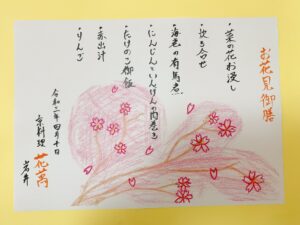 お花見御膳
・菜の花お浸し
・炊き合せ
・海老の有馬煮
・にんじん・いんげんの肉巻き
・たけのこ御飯
・赤出汁
・りんご
令和二年四月十日
京料理 花萬
岩井